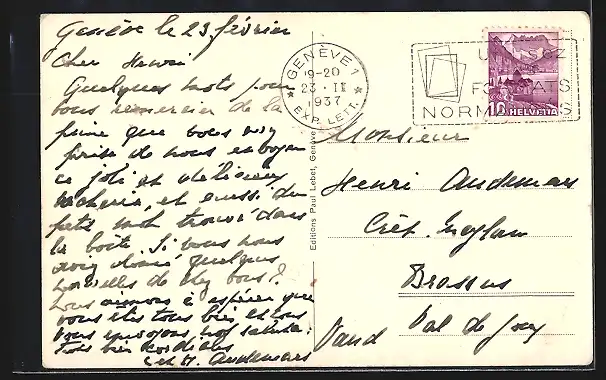 Genève le 23 février
Cher Henri
Quelques mots pour
vous remercier de la
peine que vous
prise de nous envoyer
ce joli et délicieux
et aussi du
petit mot trouvé dans
la boîte. Si vous nous
quelques
nouvelles de chez vous?
nous aimons à espérer que
vous êtes tous bien et tous
vous envoyons nos saluts
très bien cordiaux
et M. Audemars
GENÈVE 1
19-20
23. II
1937
EXP. LETT.
UTILISEZ
FORMATS
NORMALISÉS
10 HELVETIA
Editions Paul Lebet, Genève
Monsieur
Henri Audemars
Crêt-Meylan
Brassus
Val de Joux
Vaud